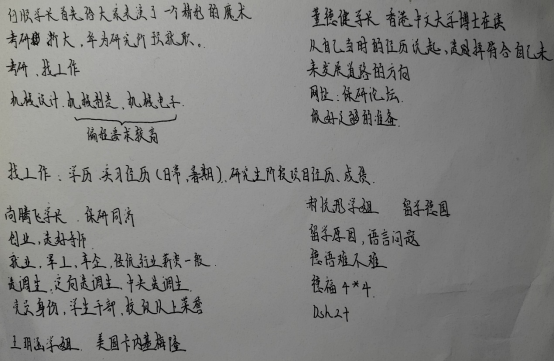 学长首先给大家来了一个精彩的展示
考研 浙大, 华为研究所 投录取.
考研, 找工作
机械设计, 机械制造, 机械电子
编程要求较高
找工作: 学历 实习经历 (日常, 暑期). 研究生阶段项目经历、成绩.
尚腾飞学长 保研同济
创业, 走好每步
就业, 军工, 车企, 但就业薪资一般.
选调生, 定向选调生, 中央选调生
党员身份, 学生干部, 校级以上荣誉
学姐 美国卡内基梅隆
董德健学长 香港中文大学博士在读
从自己当时的经历谈起, 选择择符合自己未
来发展道路的方向
网址: 保研论坛
做好足够的准备.
学姐 留学德国
留学原因, 语言问题
德语难不难
德福 4*4.
Dsh2+